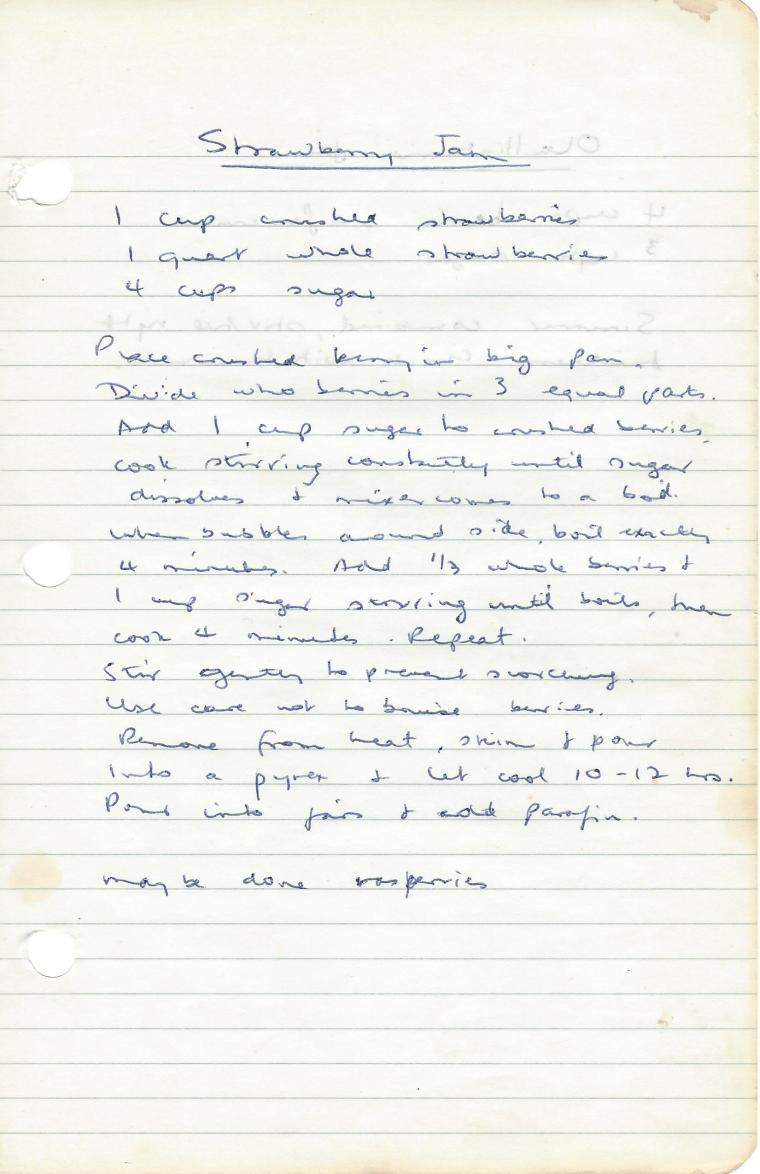 Strawberry Jam
1 cup crushed strawberries
1 quart whole strawberries
4 cups sugar
Place crushed berry in big pan.
Divide who berries in 3 equal parts.
Add 1 cup sugar to crushed berries,
cook stirring constantly until sugar
dissolves & comes to a boil.
When bubbles around side, boil exactly
4 minutes. Add 1/3 whole berries &
1 cup sugar stirring until boils, then
cook 4 minutes. Repeat.
Stir gently to prevent scorching.
Use care not to bruise berries.
Remove from heat, skim & pour
into a pyrex & let cool 10-12 hrs.
Pour into jars & add parafin.
may be done rasperries